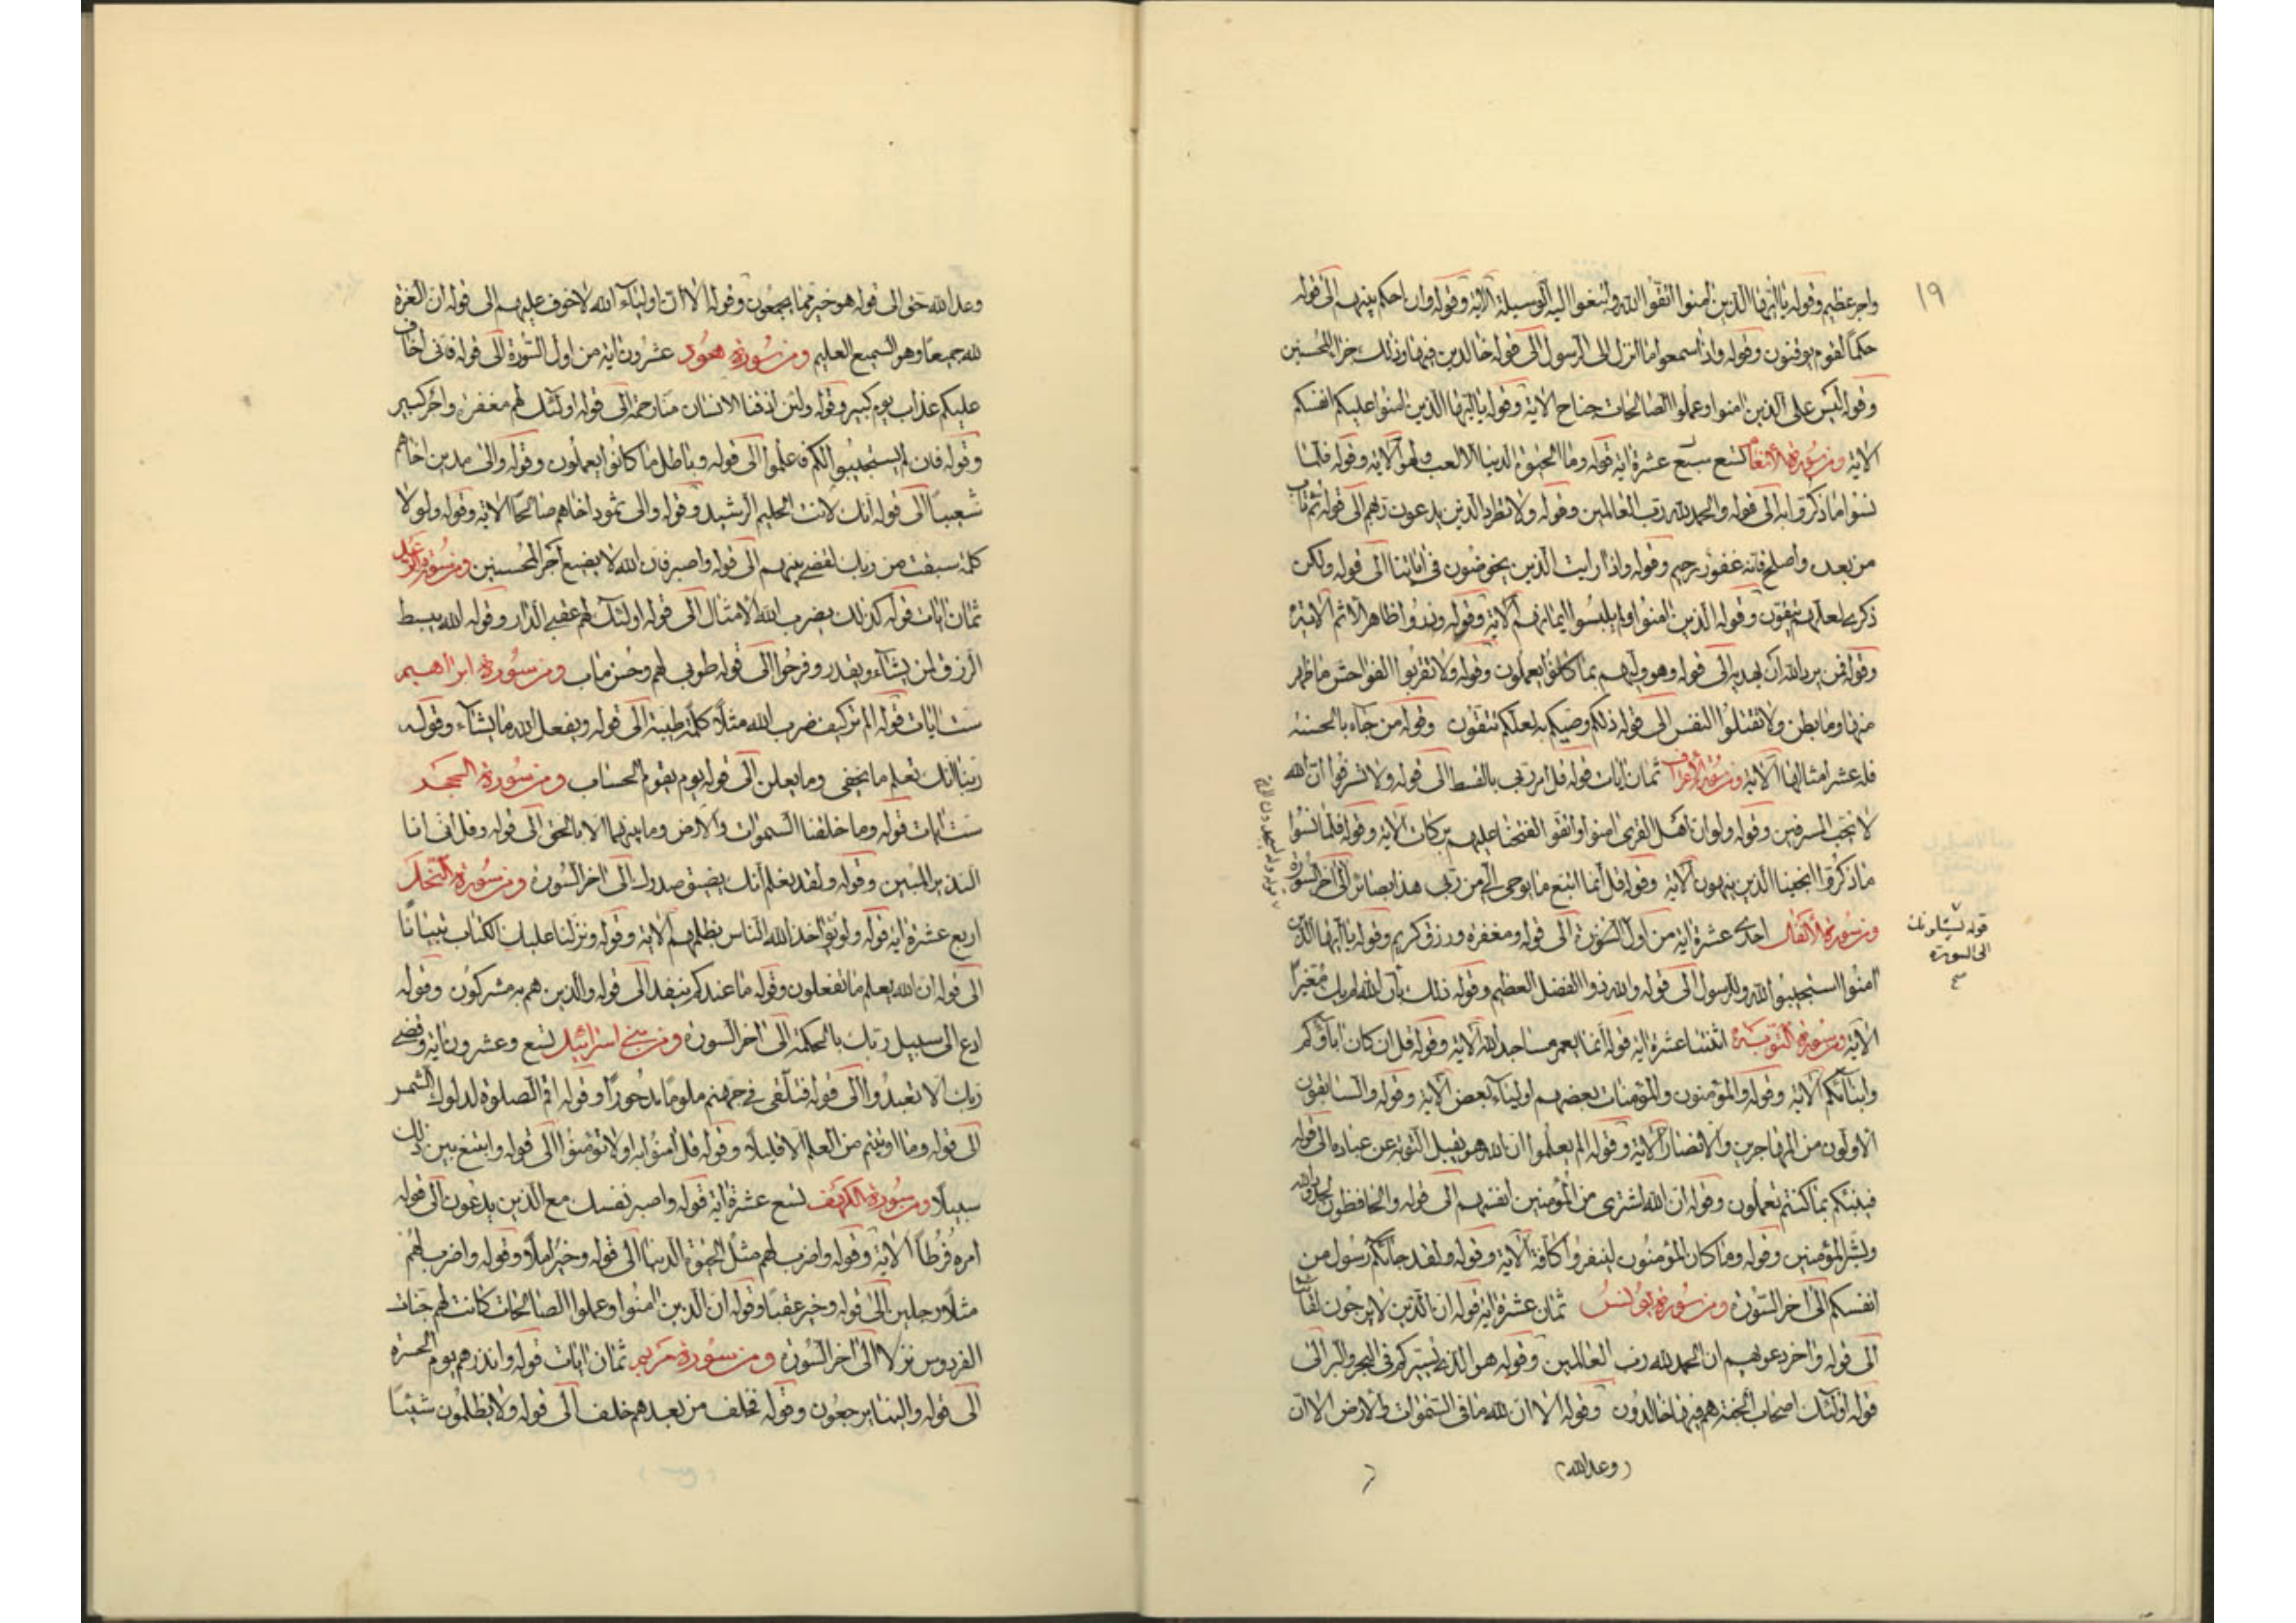 ١٩
واجر عظيم وقوله يا ايها الذين امنوا اتقوا الله وابتغوا اليه الوسيلة الآية وقوله وان احكم بينهم الى قوله
حكما لقوم يوقنون وقوله واذا سمعوا ما انزل الى الرسول الى قوله خالدين فيها وذلك جزاء المحسنين
وقوله ليس على الذين امنوا وعملوا الصالحات جناح الاية وقوله يا ايها الذين امنوا عليكم انفسكم
الاية ومن سورة الأنعام سبع عشرة اية قوله وما الحيوة الدنيا الا لعب ولهو الاية وقوله فلما
نسوا ما ذكروا به الى قوله والحمد لله رب العالمين وقوله ولا تطرد الذين يدعون ربهم الى قوله ثم تاب
من بعده واصلح فانه غفور رحيم وقوله واذا رايت الذين يخوضون في اياتنا الى قوله ولكن
ذكرى لعلهم يتقون وقوله الذين امنوا ولم يلبسوا ايمانهم الاية وقوله وذروا ظاهر الاثم الاية
وقوله فمن يرد الله ان يهديه الى قوله وهو وليهم بما كانوا يعملون وقوله ولا تقربوا الفواحش ما ظهر
منها وما بطن ولا تقتلوا النفس الى قوله ذلكم وصيكم به لعلكم تتقون وقوله من جاء بالحسنة
فله عشر امثالها الاية ومن سورة الأعراف ثمان ايات قوله قل امر ربي بالقسط الى قوله ولا تسرفوا ان الله
لا يحب المسرفين وقوله ولو ان اهل القرى امنوا واتقوا لفتحنا عليهم بركات الاية وقوله فلما نسوا
ما ذكروا انجينا الذين ينهون الاية وقوله قل انما اتبع ما يوحى الي من ربي هذا بصائر الى اخر السورة
ومن سورة الأنفال احدى عشرة اية من اول السورة الى قوله ومغفرة ورزق كريم وقوله يا ايها الذين
قوله يسئلونك
الى السورة
امنوا استجيبوا لله وللرسول الى قوله والله ذوا الفضل العظيم وقوله ذلك بأن الله لم يك مغيرا
الاية ومن سورة التوبة اثنتا عشرة اية قوله انما يعمر مساجد الله الاية وقوله قل ان كان اباؤكم
وابنائكم الاية وقوله والمؤمنون والمؤمنات بعضهم اولياء بعض الاية وقوله والسابقون
الاولون من المهاجرين والانصار الاية وقوله الم يعلموا ان الله هو يقبل التوبة عن عباده الى قوله
فينبئكم بما كنتم تعملون وقوله ان الله اشترى من المؤمنين انفسهم الى قوله والحافظون لحدود الله
وبشر المؤمنين وقوله وما كان المؤمنون لينفروا كافة الاية وقوله ولقد جائكم رسول من
انفسكم الى اخر السورة ومن سورة يونس ثمان عشرة اية قوله ان الذين لا يرجون لقائنا
الى قوله واخر دعويهم ان الحمد لله رب العالمين وقوله هو الذي يسيركم في البحر والبر الى
قوله اولئك اصحاب الجنة هم فيها خالدون وقوله الا ان لله ما في السموات والارض الا ان
(وعد الله)
وعد الله حق الى قوله هو خير مما يجمعون وقوله الا ان اولياء الله لا خوف عليهم الى قوله ان العزة
لله جميعا وهو السميع العليم ومن سورة هود عشرون اية من اول السورة الى قوله فاني اخاف
عليكم عذاب يوم كبير وقوله ولئن اذقنا الانسان منا رحمة الى قوله اولئك لهم مغفرة واجر كبير
وقوله فان لم يستجيبوا لكم فاعلموا الى قوله وباطل ما كانوا يعملون وقوله والى مدين اخاهم
شعيبا الى قوله انك لانت الحليم الرشيد وقوله والى ثمود اخاهم صالحا الاية وقوله ولولا
كلمة سبقت من ربك لقضي بينهم الى قوله واصبر فان الله لا يضيع اجر المحسنين ومن سورة الرعد
ثمان ايات قوله كذلك يضرب الله الامثال الى قوله اولئك لهم عقبى الدار وقوله الله يبسط
الرزق لمن يشاء ويقدر وفرحوا الى قوله طوبى لهم وحسن ماب ومن سورة ابراهيم
ست ايات قوله الم تر كيف ضرب الله مثلا كلمة طيبة الى قوله ويفعل الله ما يشاء وقوله
ربنا انك تعلم ما نخفي وما نعلن الى قوله يوم يقوم الحساب ومن سورة الحجر
ست ايات قوله وما خلقنا السموات والارض وما بينهما الا بالحق الى قوله وقل اني انا
النذير المبين وقوله ولقد يعلم انك يضيق صدرك الى اخر السورة ومن سورة النحل
اربع عشرة اية قوله ولو يؤاخذ الله الناس بظلمهم الاية وقوله ونزلنا عليك الكتاب تبيانا
الى قوله ان الله يعلم ما تفعلون وقوله ما عندكم ينفد الى قوله والذين هم به مشركون وقوله
ادع الى سبيل ربك بالحكمة الى اخر السورة ومن بني اسرائيل تسع وعشرون اية وقضى
ربك الا تعبدوا الى قوله فتلقى في جهنم ملوما مدحورا وقوله اقم الصلوة لدلوك الشمس
الى قوله وما اوتيتم من العلم الا قليلا وقوله قل امنوا به او لا تؤمنوا الى قوله وابتغ بين ذلك
سبيلا ومن سورة الكهف تسع عشرة اية قوله واصبر نفسك مع الذين يدعون الى قوله
امره فرطا الاية وقوله واضرب لهم مثل الحيوة الدنيا الى قوله وخير املا وقوله واضرب لهم
مثلا رجلين الى قوله وخير عقبا وقوله ان الذين امنوا وعملوا الصالحات كانت لهم جنات
الفردوس نزلا الى اخر السورة ومن سورة مريم ثمان ايات قوله وانذرهم يوم الحسرة
الى قوله والينا يرجعون وقوله فخلف من بعدهم خلف الى قوله ولا يظلمون شيئا